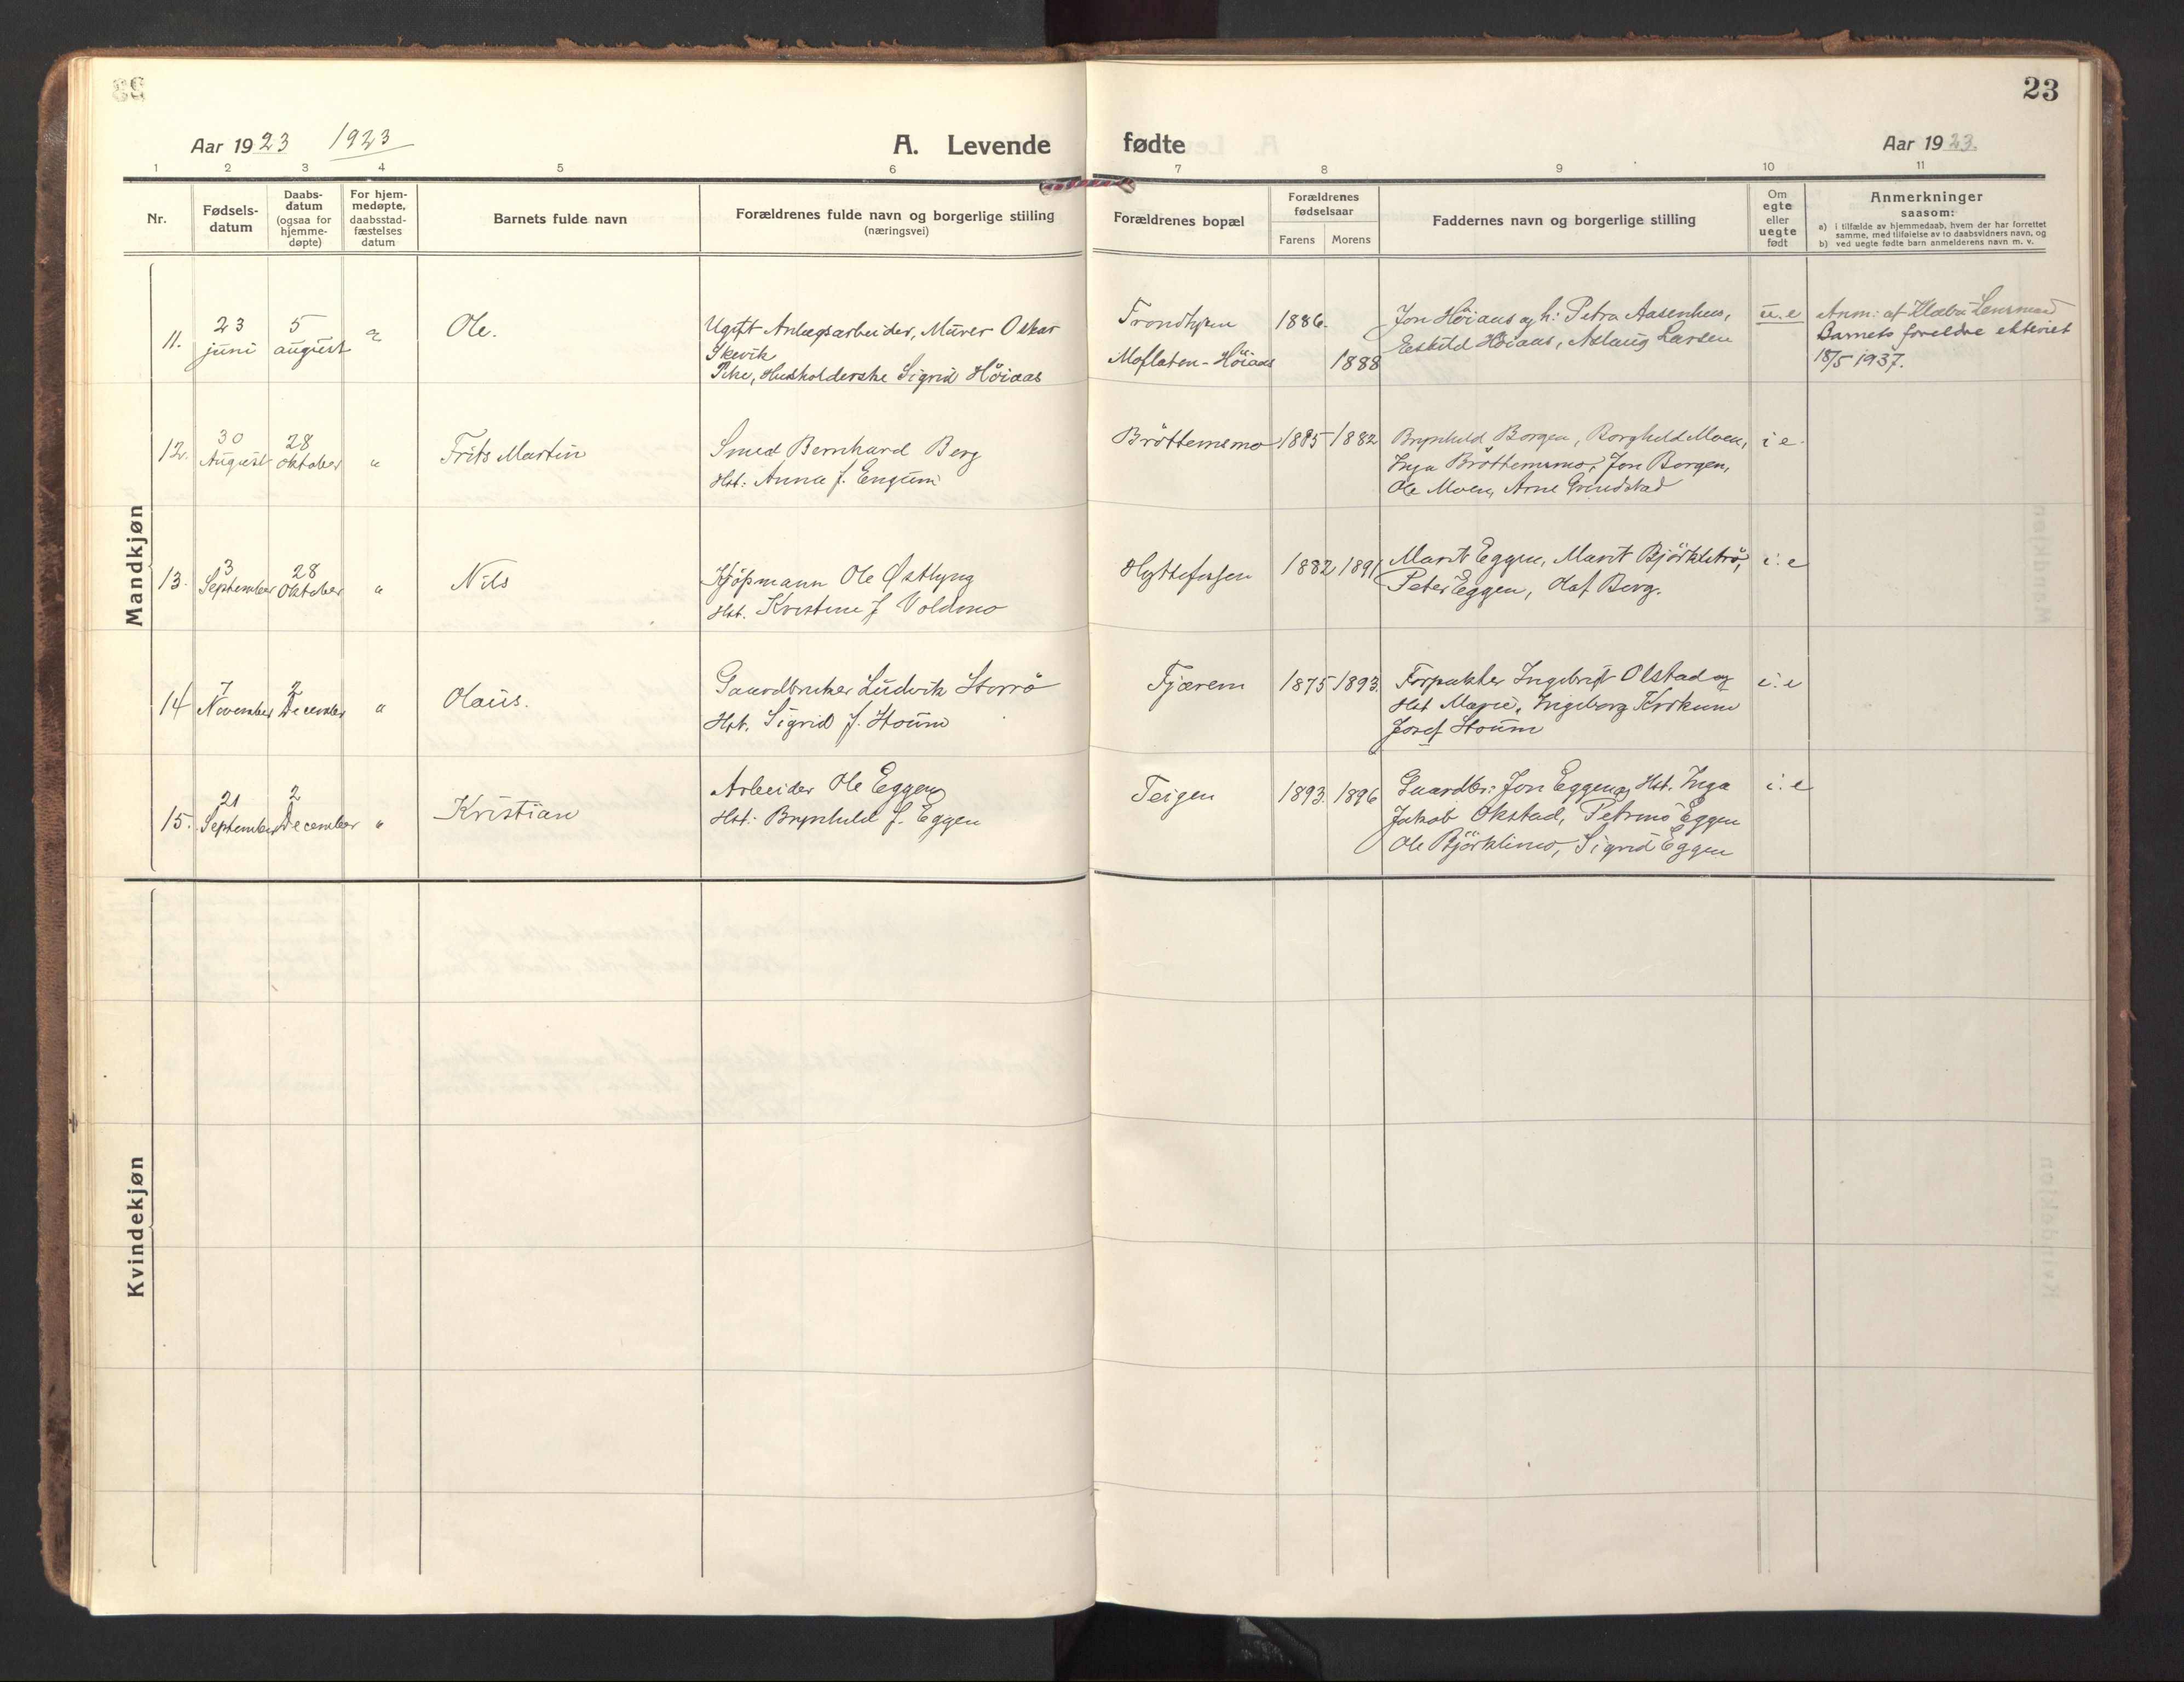 23
Aar 1923 1923
A. Levende fødte
Aar 1923.
1 2 3 4 5 6 7 8 9 10 11
Nr.
Fødsels-
datum
Daabs-
datum
(ogsaa for
hjemme-
døpte)
For hjem-
medøpte,
daabsstad-
fæstelses
datum
Barnets fulde navn
Forældrenes fulde navn og borgerlige stilling
(næringsvei)
Forældrenes bopæl
Forældrenes
fødselsaar
Farens Morens
Faddernes navn og borgerlige stilling
Om
egte
eller
uegte
født
Anmerkninger
saasom:
a) i tilfælde av hjemmedaab, hvem der har forrettet
samme, med tilføielse av to daabsvidners navn, og
b) ved uegte fødte barn anmelderens navn m. v.
Mandkjøn
11.
23
juni
5
august
"
Ole.
Ugift Anlægsarbeider, Murer Oskar
Skevik
Pike, Husholderske Sigrid Höiaas
Trondhjem
Moflaten-Höiaas
1886.
1888
Jon Höiaas og h: Petra Aasenhus,
Eskild Höiaas, Aslaug Larsen
u.e
Anm: af Klæbu Lensmand
Barnets foreldre ekteviet
18/5 1937.
12.
30
August
28
Oktober
"
Frits Martin
Smed Bernhard Berg
Hst: Anna f. Engum
Bröttemsmo
1885 1882
Brynhild Borgen, Borghild Moen,
Inga Bröttemsmo, Jon Borgen,
Ole Moen, Arne Grendstad
i e.
13.
3
September
28
Oktober
"
Nils
Kjöpmann Ole Østlyng
Hst. Kristine f Voldmo
Hyttefossen
1882 1891
Marit Eggen, Marit Björkletrö,
Peter Eggen, Olaf Berg.
i: e
14
7
November
2
December
"
Olaus.
Gaardbruker Ludvik Storrö
Hst. Sigrid f. Houm
Fjærem
1875 1893.
Forpakter Ingebrigt Olstad og
Hst Marie, Ingeborg
Josef Houm
i: e
15.
21
September
2
December
"
Kristian
Arbeider Ole Eggen
Hst: Brynhild f. Eggen
Teigen
1893. 1896
Gaardbr: Jon Eggen og Hst. Inga
Jakob Okstad, Petrine Eggen
Ole Björklimo, Sigrid Eggen
i: e
Kvindekjøn